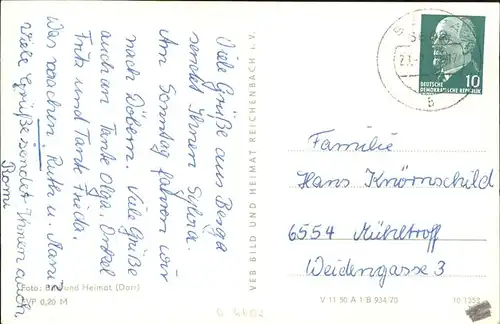 Viele Grüße aus Berga
sendet Ihnen Sylvia.
Am Sonntag fahren wir
nach Döbern. Viele Grüße
auch an Tante Olga, Onkel
Fritz und Tante Frieda.
Was machen Ruth u. Mann
Viele Grüße sendet Ihnen auch
Romi
Foto: Bild und Heimat (Darr)
EVP 0,20 M
VEB BILD UND HEIMAT REICHENBACH i. V.
10
DEUTSCHE
DEMOKRATISCHE REPUBLIK
Familie
Hans Knörnschild
6554 Mühltroff
Weidengasse 3
V 11 50 A 1 B 934/70